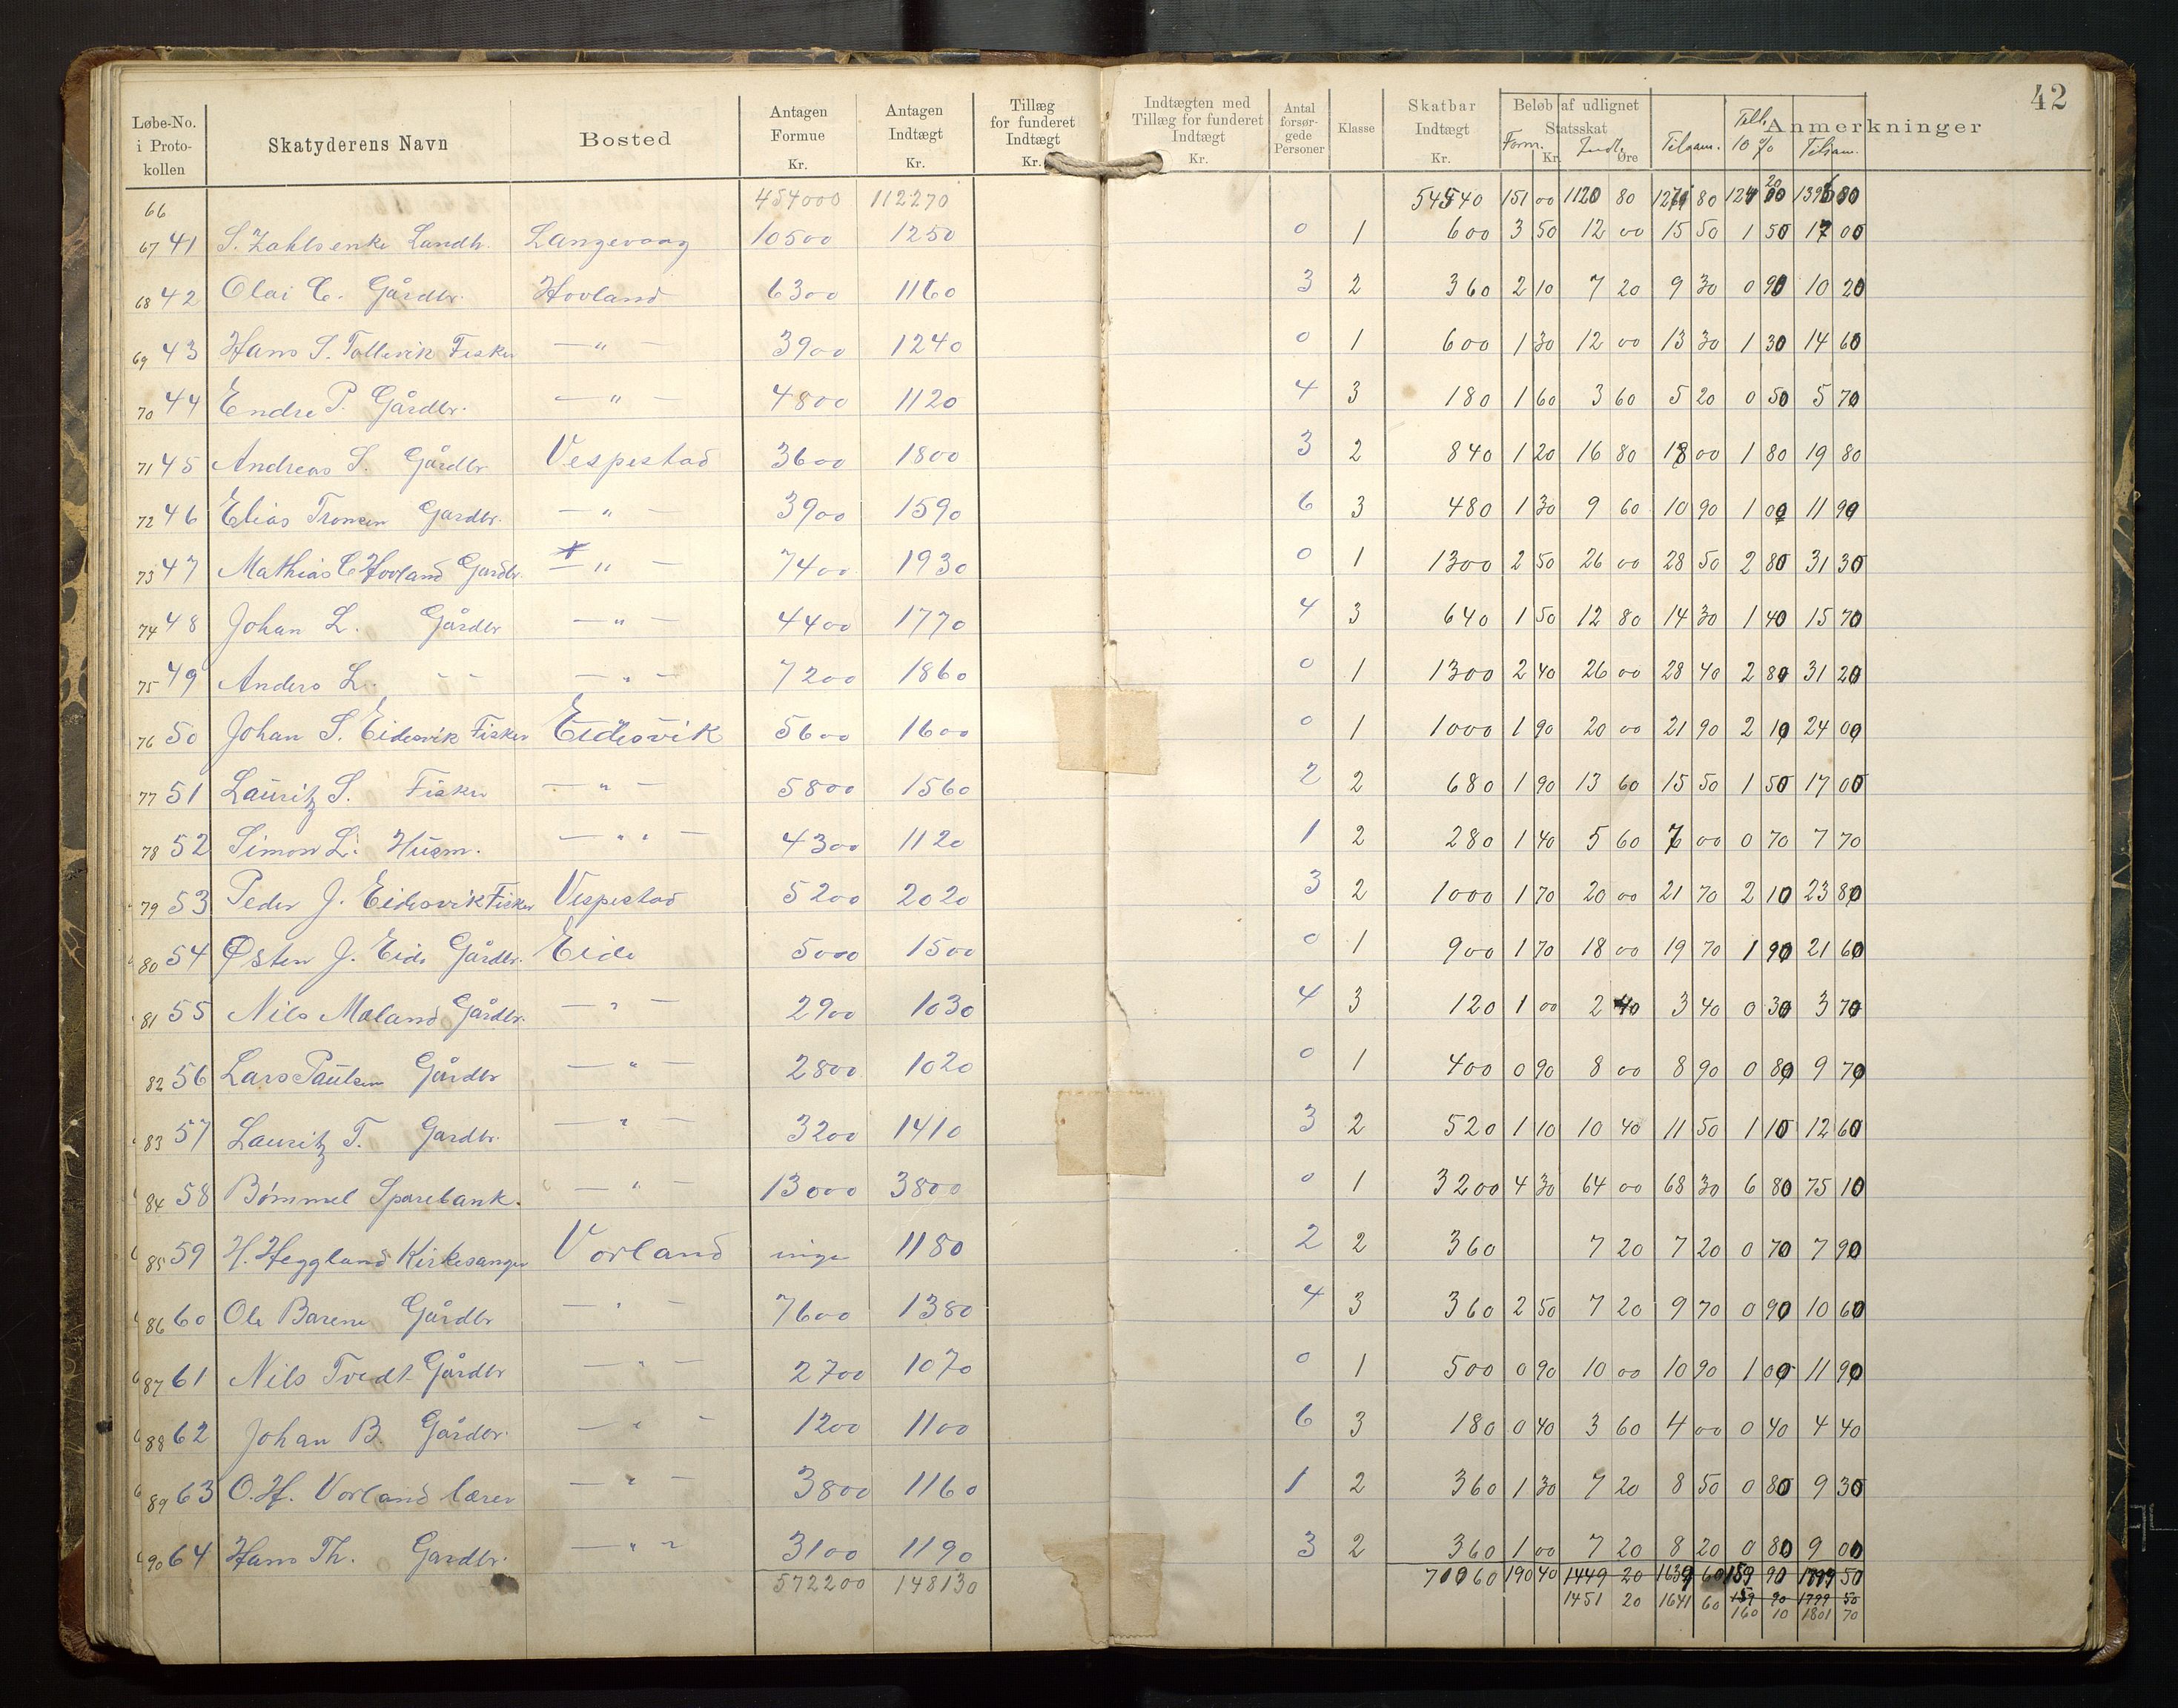 42
Løbe-No. i Proto-kollen | Skatyderens Navn | Bosted | Antagen Formue Kr. | Antagen Indtægt Kr. | Tillæg for funderet Indtægt Kr. | Indtægten med Tillæg for funderet Indtægt Kr. | Antal forsør-gede Personer | Klasse | Skatbar Indtægt Kr. | Beløb af udlignet Statsskat Form. Kr. Indt. Øre | Tilsam. | Till. 10 % | Tilsam. | Anmerkninger
66 454000 112270 54540 151 00 1120 80 80 20 80
67 41 S. Zahlsenke Landh. Langevaag 10500 1250 0 1 600 3 50 12 00 15 50 1 50 17 00
68 42 Olai C. Gårdbr. Hovland 6300 1160 3 2 360 2 10 7 20 9 30 0 90 10 20
69 43 Hans S. Tollevik Fisker — " — 3900 1240 0 1 600 1 30 12 00 13 30 1 30 14 60
70 44 Endre P. Gårdbr. — " — 4800 1120 4 3 180 1 60 3 60 5 20 0 50 5 70
71 45 Andreas S. Gårdbr Vespestad 3600 1800 3 2 840 1 20 16 80 18 00 1 80 19 80
72 46 Elias Tronsen Gardbr. — " — 3900 1590 6 3 480 1 30 9 60 10 90 1 00 11 90
73 47 Mathias C Hovland Gardbr. — " — 7400 1930 0 1 1300 2 50 26 00 28 50 2 80 31 30
74 48 Johan L. Gårdbr — " — 4400 1770 4 3 640 1 50 12 80 14 30 1 40 15 70
75 49 Anders L. - - — " — 7200 1860 0 1 1300 2 40 26 00 28 40 2 80 31 20
76 50 Johan S. Eidesvik Fisker Eidesvik 5600 1600 0 1 1000 1 90 20 00 21 90 2 10 24 00
77 51 Lauritz S. Fisker — " — 5800 1560 2 2 680 1 90 13 60 15 50 1 50 17 00
78 52 Simon L. Husm. — " — 4300 1120 1 2 280 1 40 5 60 7 00 0 70 7 70
79 53 Peder J. Eidesvik Fisker Vespestad 5200 2020 3 2 1000 1 70 20 00 21 70 2 10 23 80
80 54 Østen J. Eide Gårdbr. Eide 5000 1500 0 1 900 1 70 18 00 19 70 1 90 21 60
81 55 Nils Mæland Gårdbr. — " — 2900 1030 4 3 120 1 00 2 40 3 40 0 30 3 70
82 56 Lars Paulsen Gårdbr — " — 2800 1020 0 1 400 0 90 8 00 8 90 0 80 9 70
83 57 Lauritz T. Gardbr. — " — 3200 1410 3 2 520 1 10 10 40 11 50 1 10 12 60
84 58 Bømmel Sparebank. — " — 13000 3800 0 1 3200 4 30 64 00 68 30 6 80 75 10
85 59 H. Heggland Kirkesanger Vorland inge 1180 2 2 360 7 20 7 20 0 70 7 90
86 60 Ole Barene Gårdbr — " — 7600 1380 4 3 360 2 50 7 20 9 70 0 90 10 60
87 61 Nils Tvedt Gårdbr — " — 2700 1070 0 1 500 0 90 10 00 10 90 1 00 11 90
88 62 Johan B. Gårdbr. — " — 1200 1100 6 3 180 0 40 3 60 4 00 0 40 4 40
89 63 O. H. Vorland lærer — " — 3800 1160 1 2 360 1 30 7 20 8 50 0 80 9 30
90 64 Hans Th. Gardbr. — " " 3100 1190 3 2 360 1 00 7 20 8 20 0 80 9 00
572200 148130 70060 190 40 1449 20 1639 60 159 90 1799 50
1451 20 1641 60 159 90 1799 50
160 10 1801 70